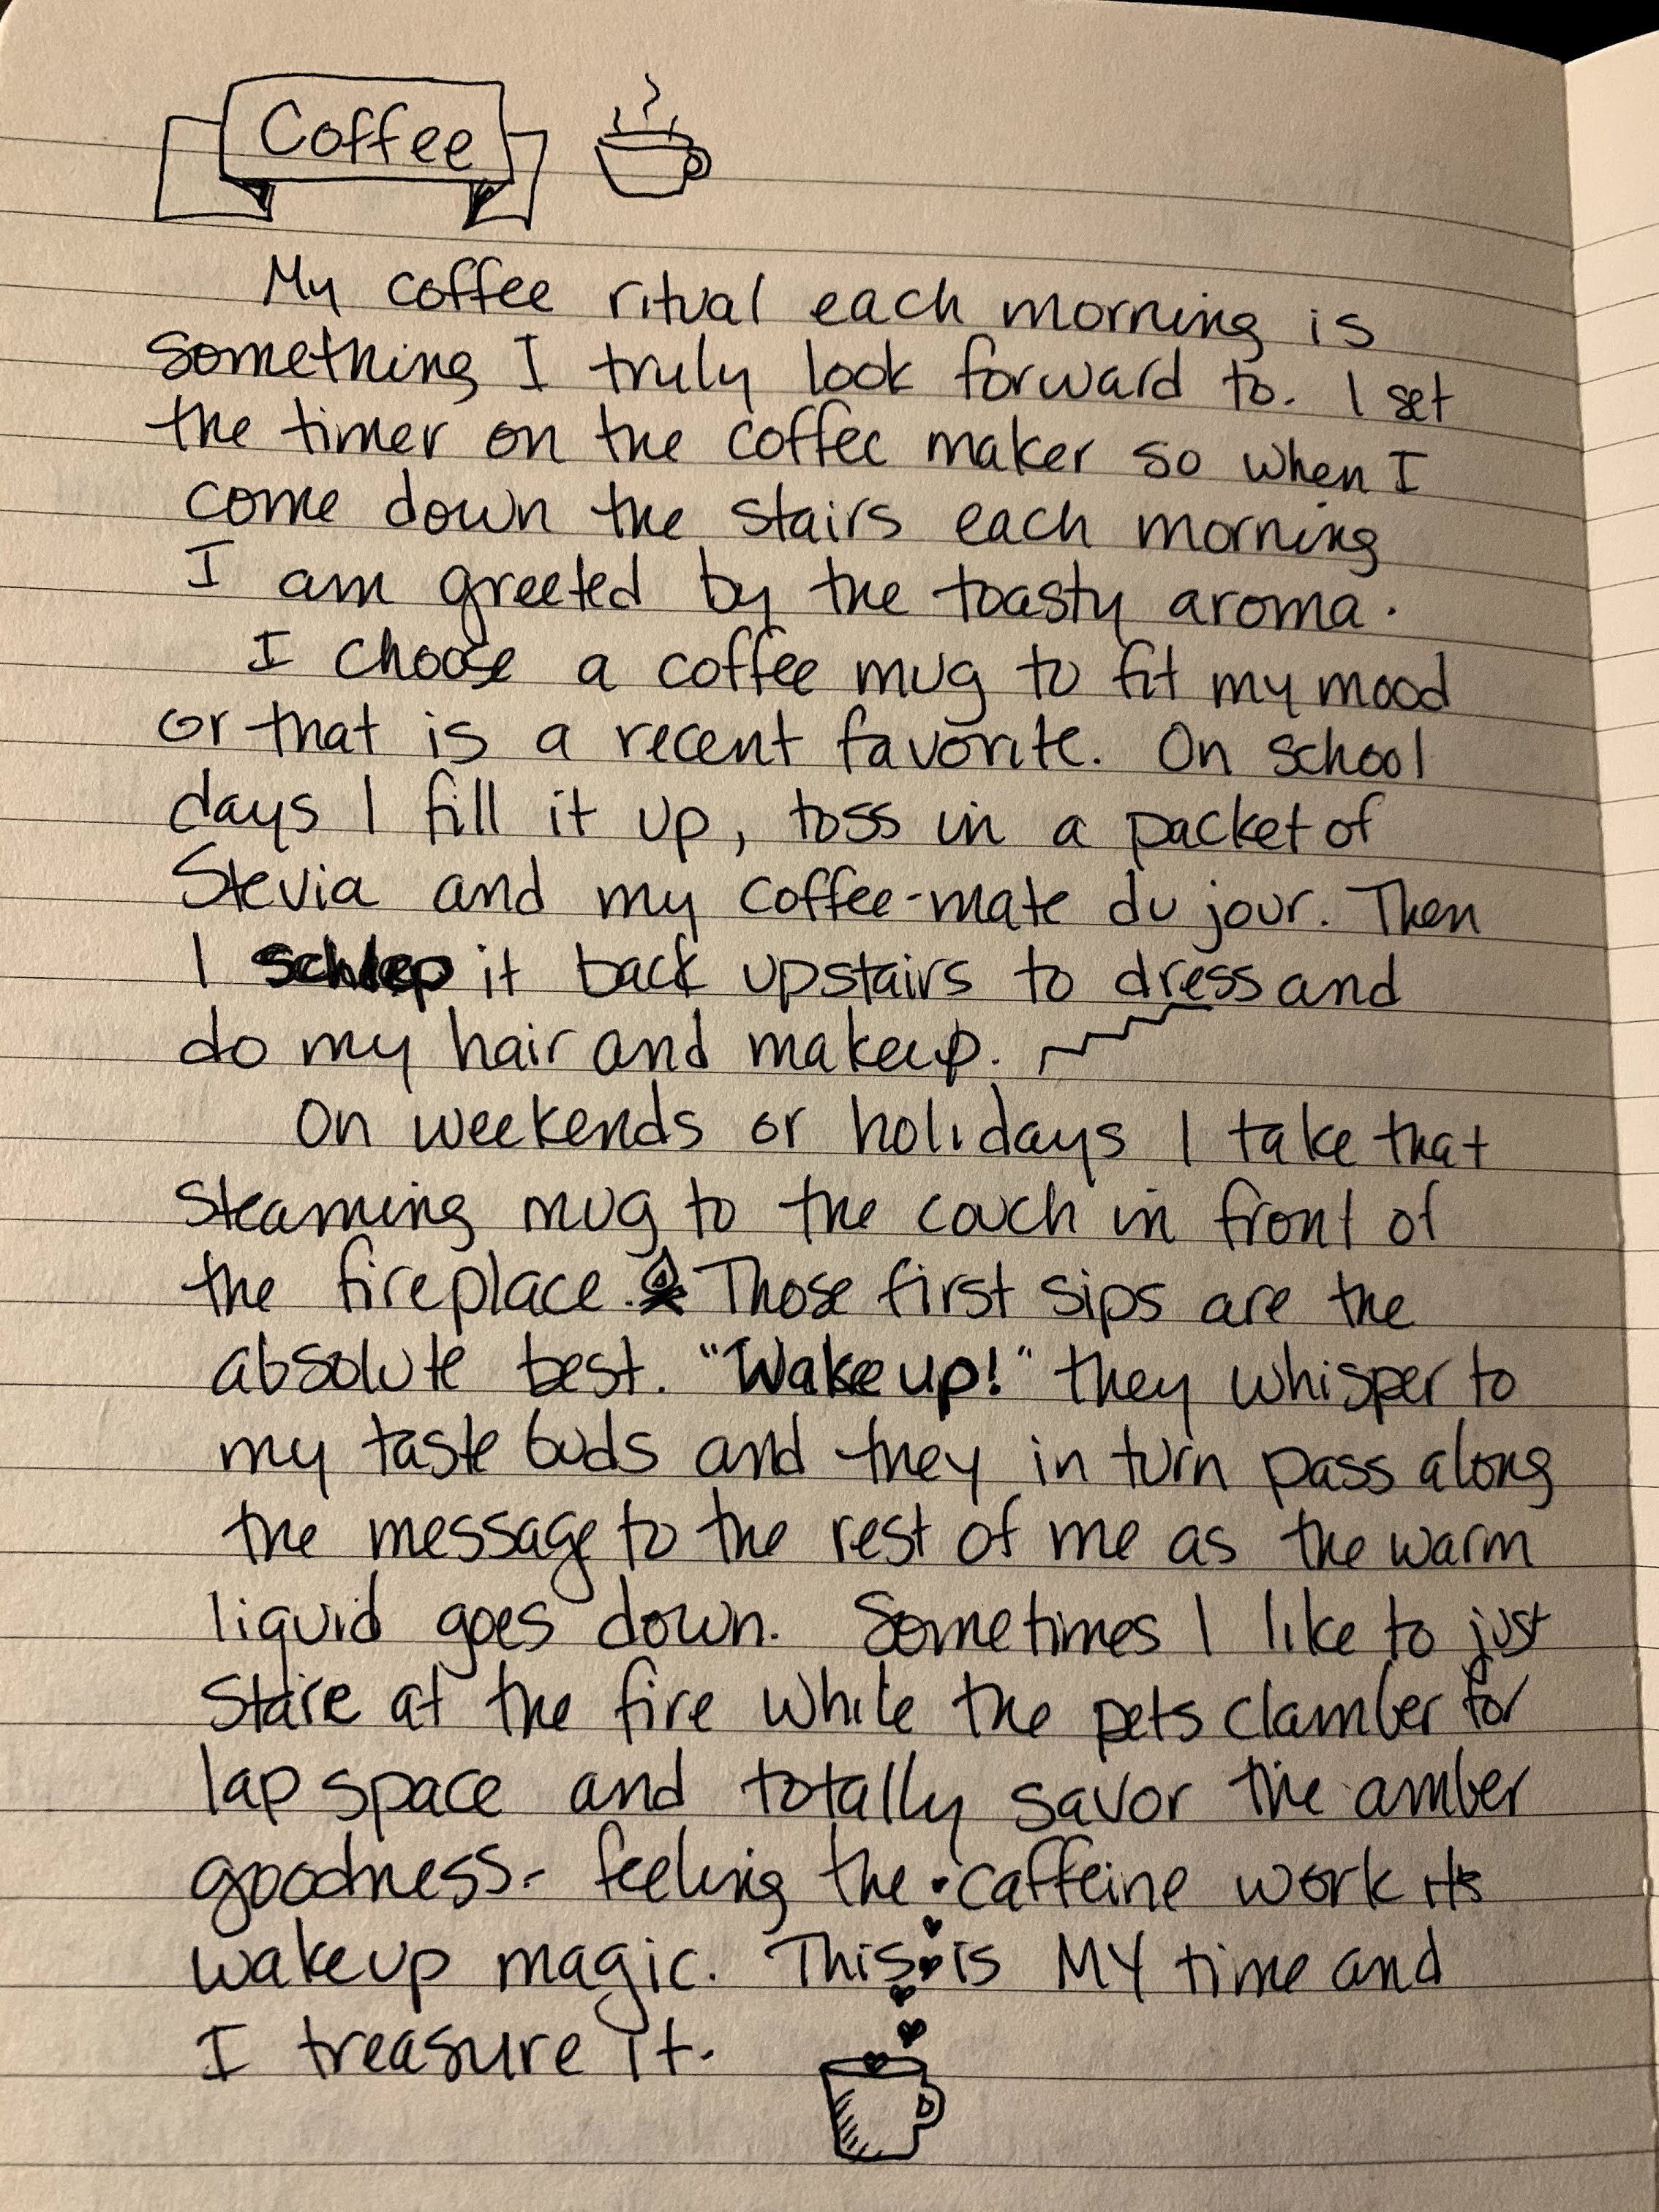 Coffee
My coffee ritual each morning is
something I truly look forward to. I set
the timer on the coffee maker so when I
come down the stairs each morning
I am greeted by the toasty aroma.
I choose a coffee mug to fit my mood
or that is a recent favorite. On school
days I fill it up, toss in a packet of
Stevia and my coffee-mate du jour. Then
I schlep it back upstairs to dress and
do my hair and makeup.
On weekends or holidays I take that
steaming mug to the couch in front of
the fireplace. Those first sips are the
absolute best. "Wake up!" they whisper to
my taste buds and they in turn pass along
the message to the rest of me as the warm
liquid goes down. Sometimes I like to just
stare at the fire while the pets clamber for
lap space and totally savor the amber
goodness - feeling the caffeine work its
wakeup magic. This is MY time and
I treasure it.